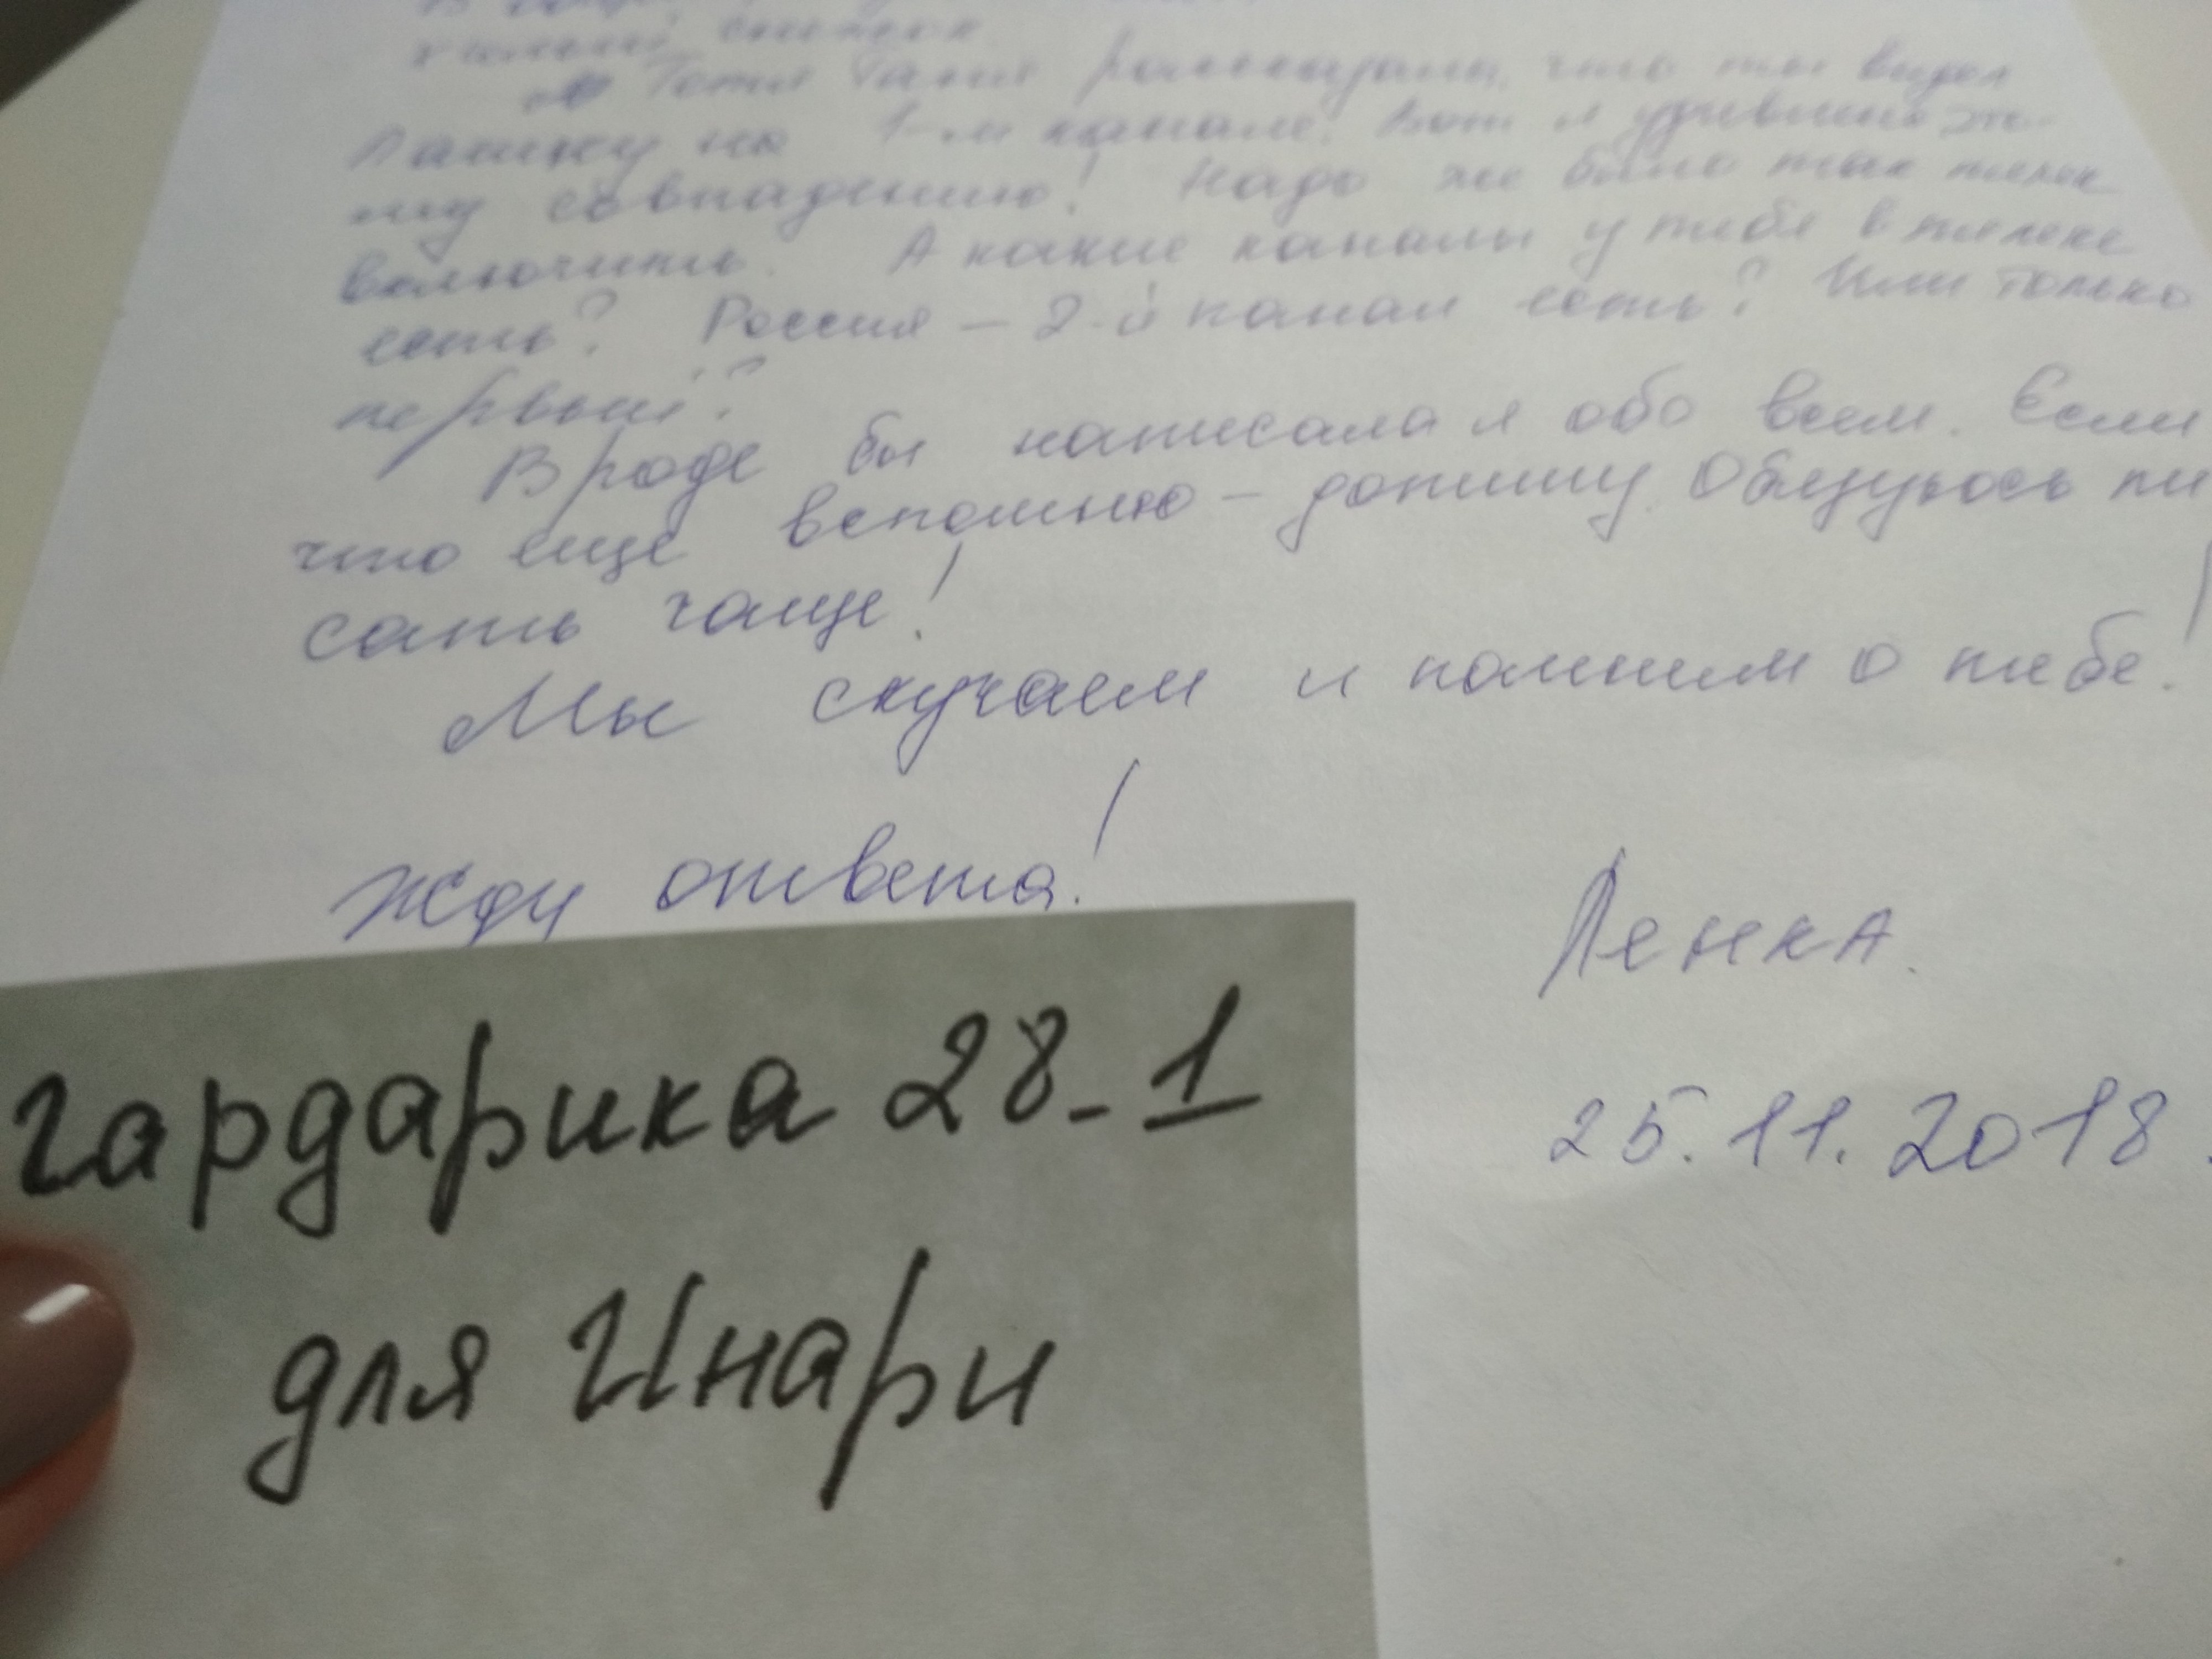 Тетя Таня рассказала, что ты видел
Пашку на 1-м канале! Вот и удивлена это-
му совпадению! Надо же было так телек
включить. А какие каналы у тебя в телеке
есть? Россия — 2-й канал есть? Или только
первый?
Вроде бы написала я обо всем. Если
что еще вспомню — допишу. Обязуюсь пи
сать чаще!
Мы скучаем и помним о тебе!
Жду ответа!
Ленка.
25.11.2018.
гардарика 28-1
для Инари